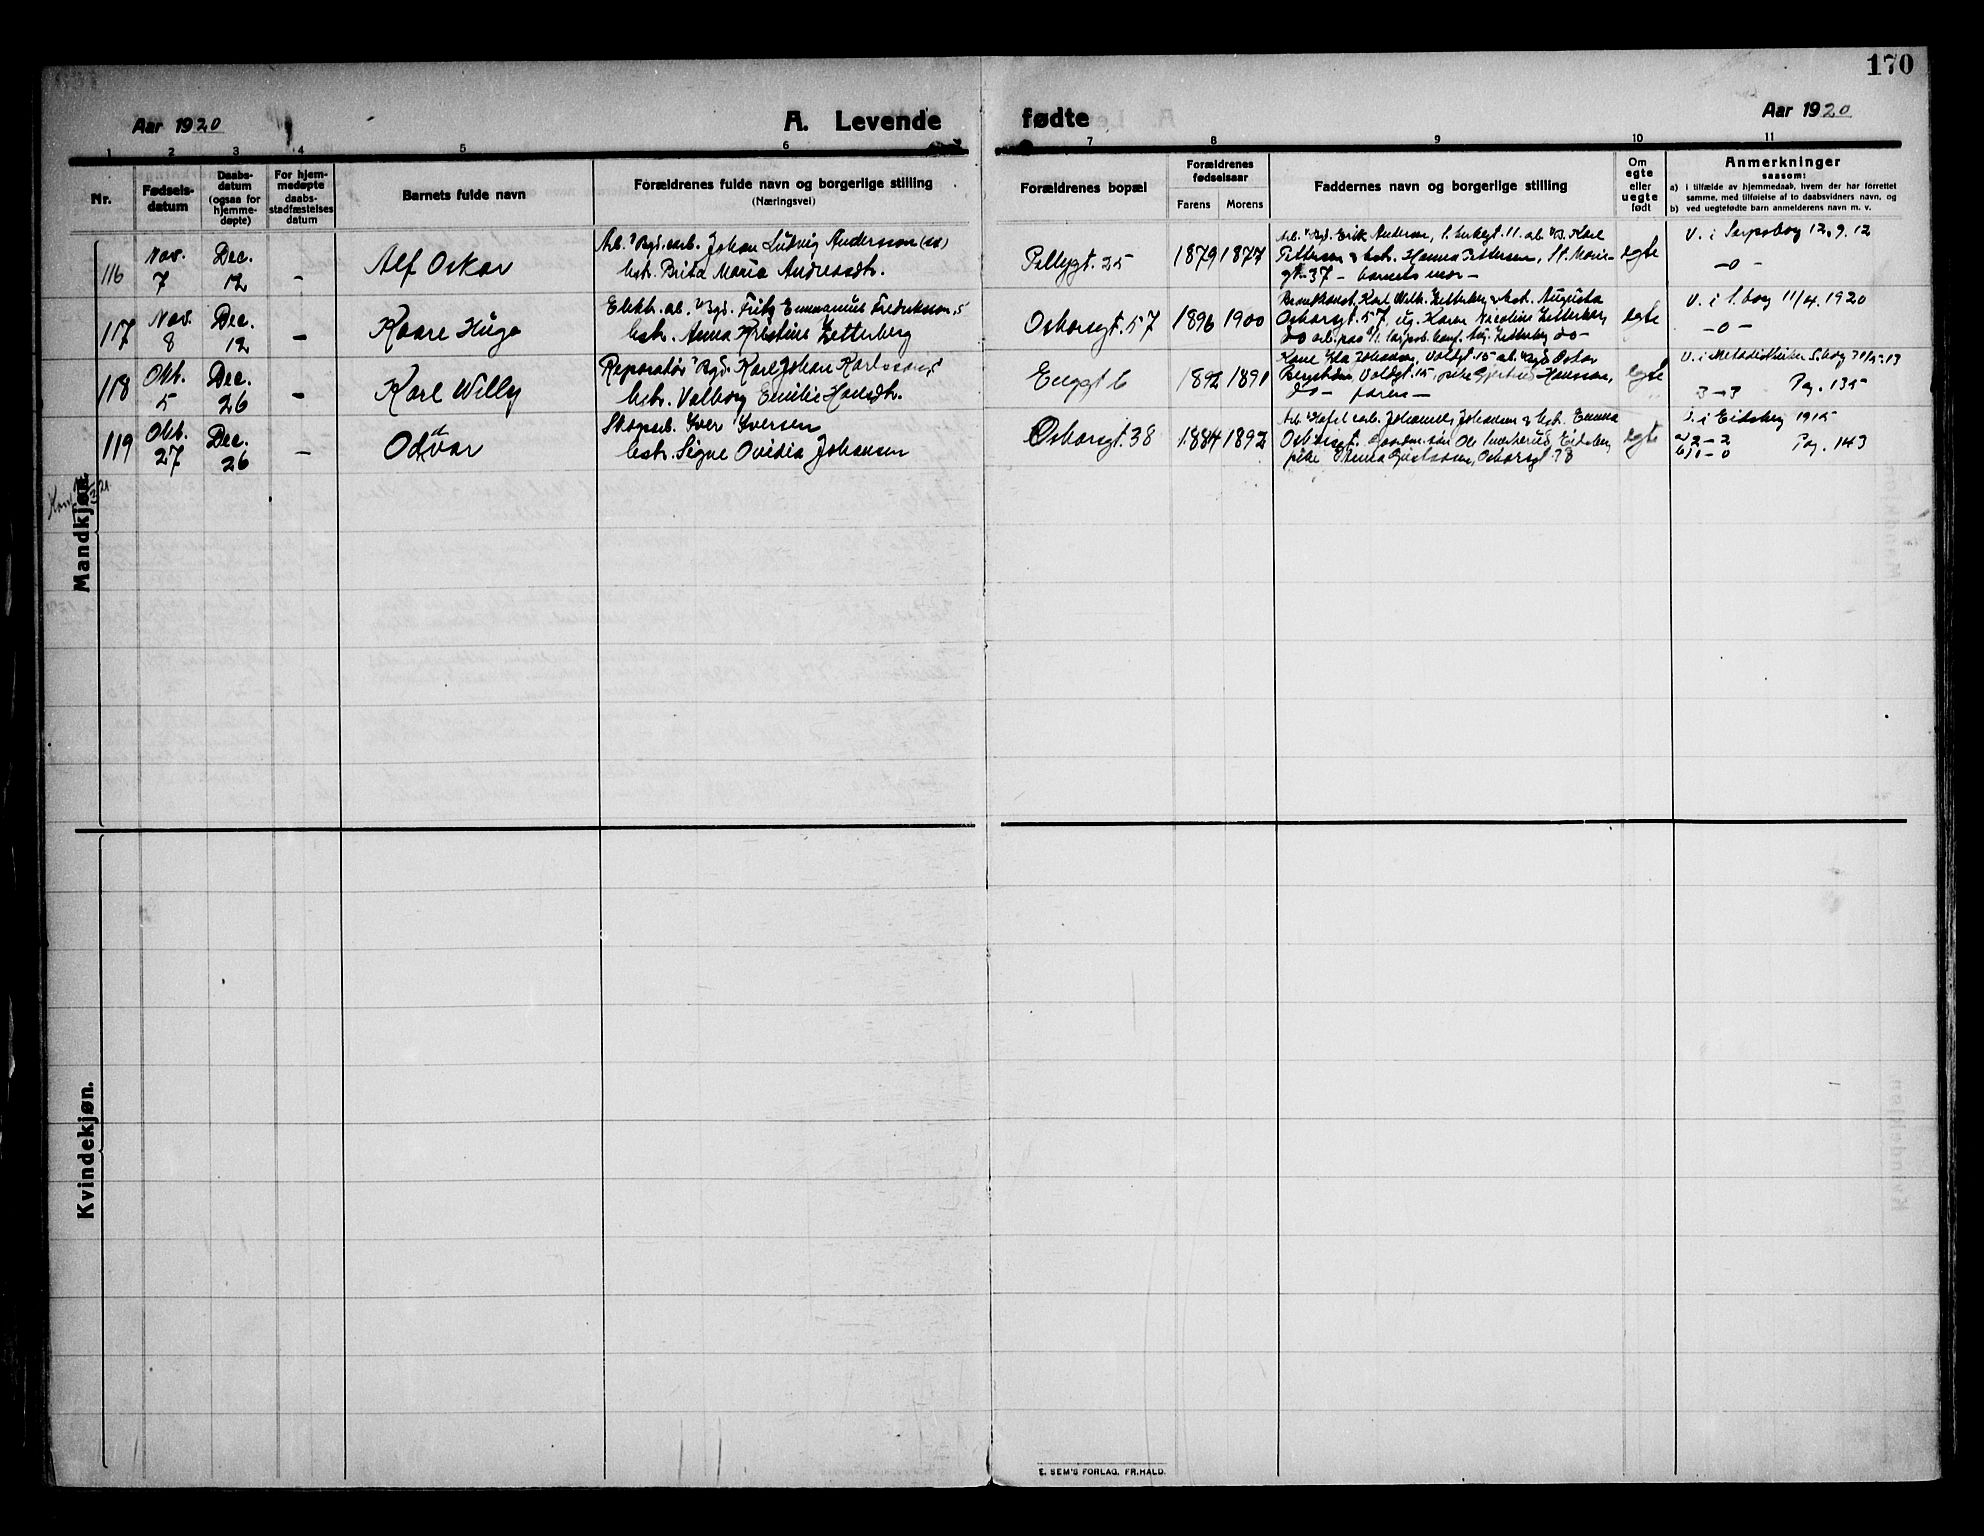 170
Aar 1920
A. Levende
fødte
Aar 1920
1 2 3 4 5 6 7 8 9 10 11
Nr.
Fødsels-
datum
Daabs-
datum
(ogsaa for
hjemme-
døpte)
For hjem-
medøpte
daabs-
stadfæstelses
datum
Barnets fulde navn
Forældrenes fulde navn og borgerlige stilling
(Næringsvei)
Forældrenes bopæl
Forældrenes
fødselsaar
Farens Morens
Faddernes navn og borgerlige stilling
Om
egte
eller
uegte
født
Anmerkninger
saasom:
a) i tilfælde av hjemmedaab, hvem der har forrettet
samme, med tilføielse af to daabsvidners navn, og
b) ved uegtefødte barn anmelderens navn m. v.
116
Nov.
7
Dec.
12
–
Alf Oskar
Arb. Johan Ludvig Andersson
hstr. Brita Maria Andreasdtr.
Pellygt. 25
1879 1877
Erik Andersen, 11. Karl
Pettersen & hstr. Hanna Pettersen, St. Marie-
gt. 37 – barnets mor –
egte
V. i Sarpsborg 12.9.12
– 0 –
117
Nov.
8
Dec.
12
–
Kaare Hugo
Elektr. arb. Fritz Emmanuel Fredriksson
hstr. Anna Kristine Zetterberg
Oskarsgt. 57
1896 1900
Karl Wilh. Zetterberg & hstr. Augusta
Oskarsgt. 57, ug. Karen Nicoline Zetterberg
do arb. Zetterberg do –
egte
V. i S.borg 11/4. 1920
– 0 –
118
Okt.
5
Dec.
26
–
Karl Willy
Reparatør Karl Johan Karlsson
hstr. Valborg Emilie Hansdtr.
Enggt 6
1892 1891
Johansen, Voldgt. 15 Oskar
Voldgt. 15, pike Gjertrud Hansson,
do – faren –
egte
V. i Metodistkirken S.borg
3 – 3 Pag. 135
119
Okt.
27
Dec.
26
–
Oddvar
Skoarb. Iver Iversen
hstr. Signe Ovidia Johansen
Oskarsgt. 38
1884 1892
Johannes Johansen & hstr. Emma
Oskarsgt. Ole Eidsberg
pike Anna Gustavsen, Oskarsgt. 78
egte
V. i Eidsberg 1915
a) 2 – 2 Pag. 143
b) 0 – 0
Mandkjøn.
Kvindekjøn.
E. SEM'S FORLAG, FR.HALD.